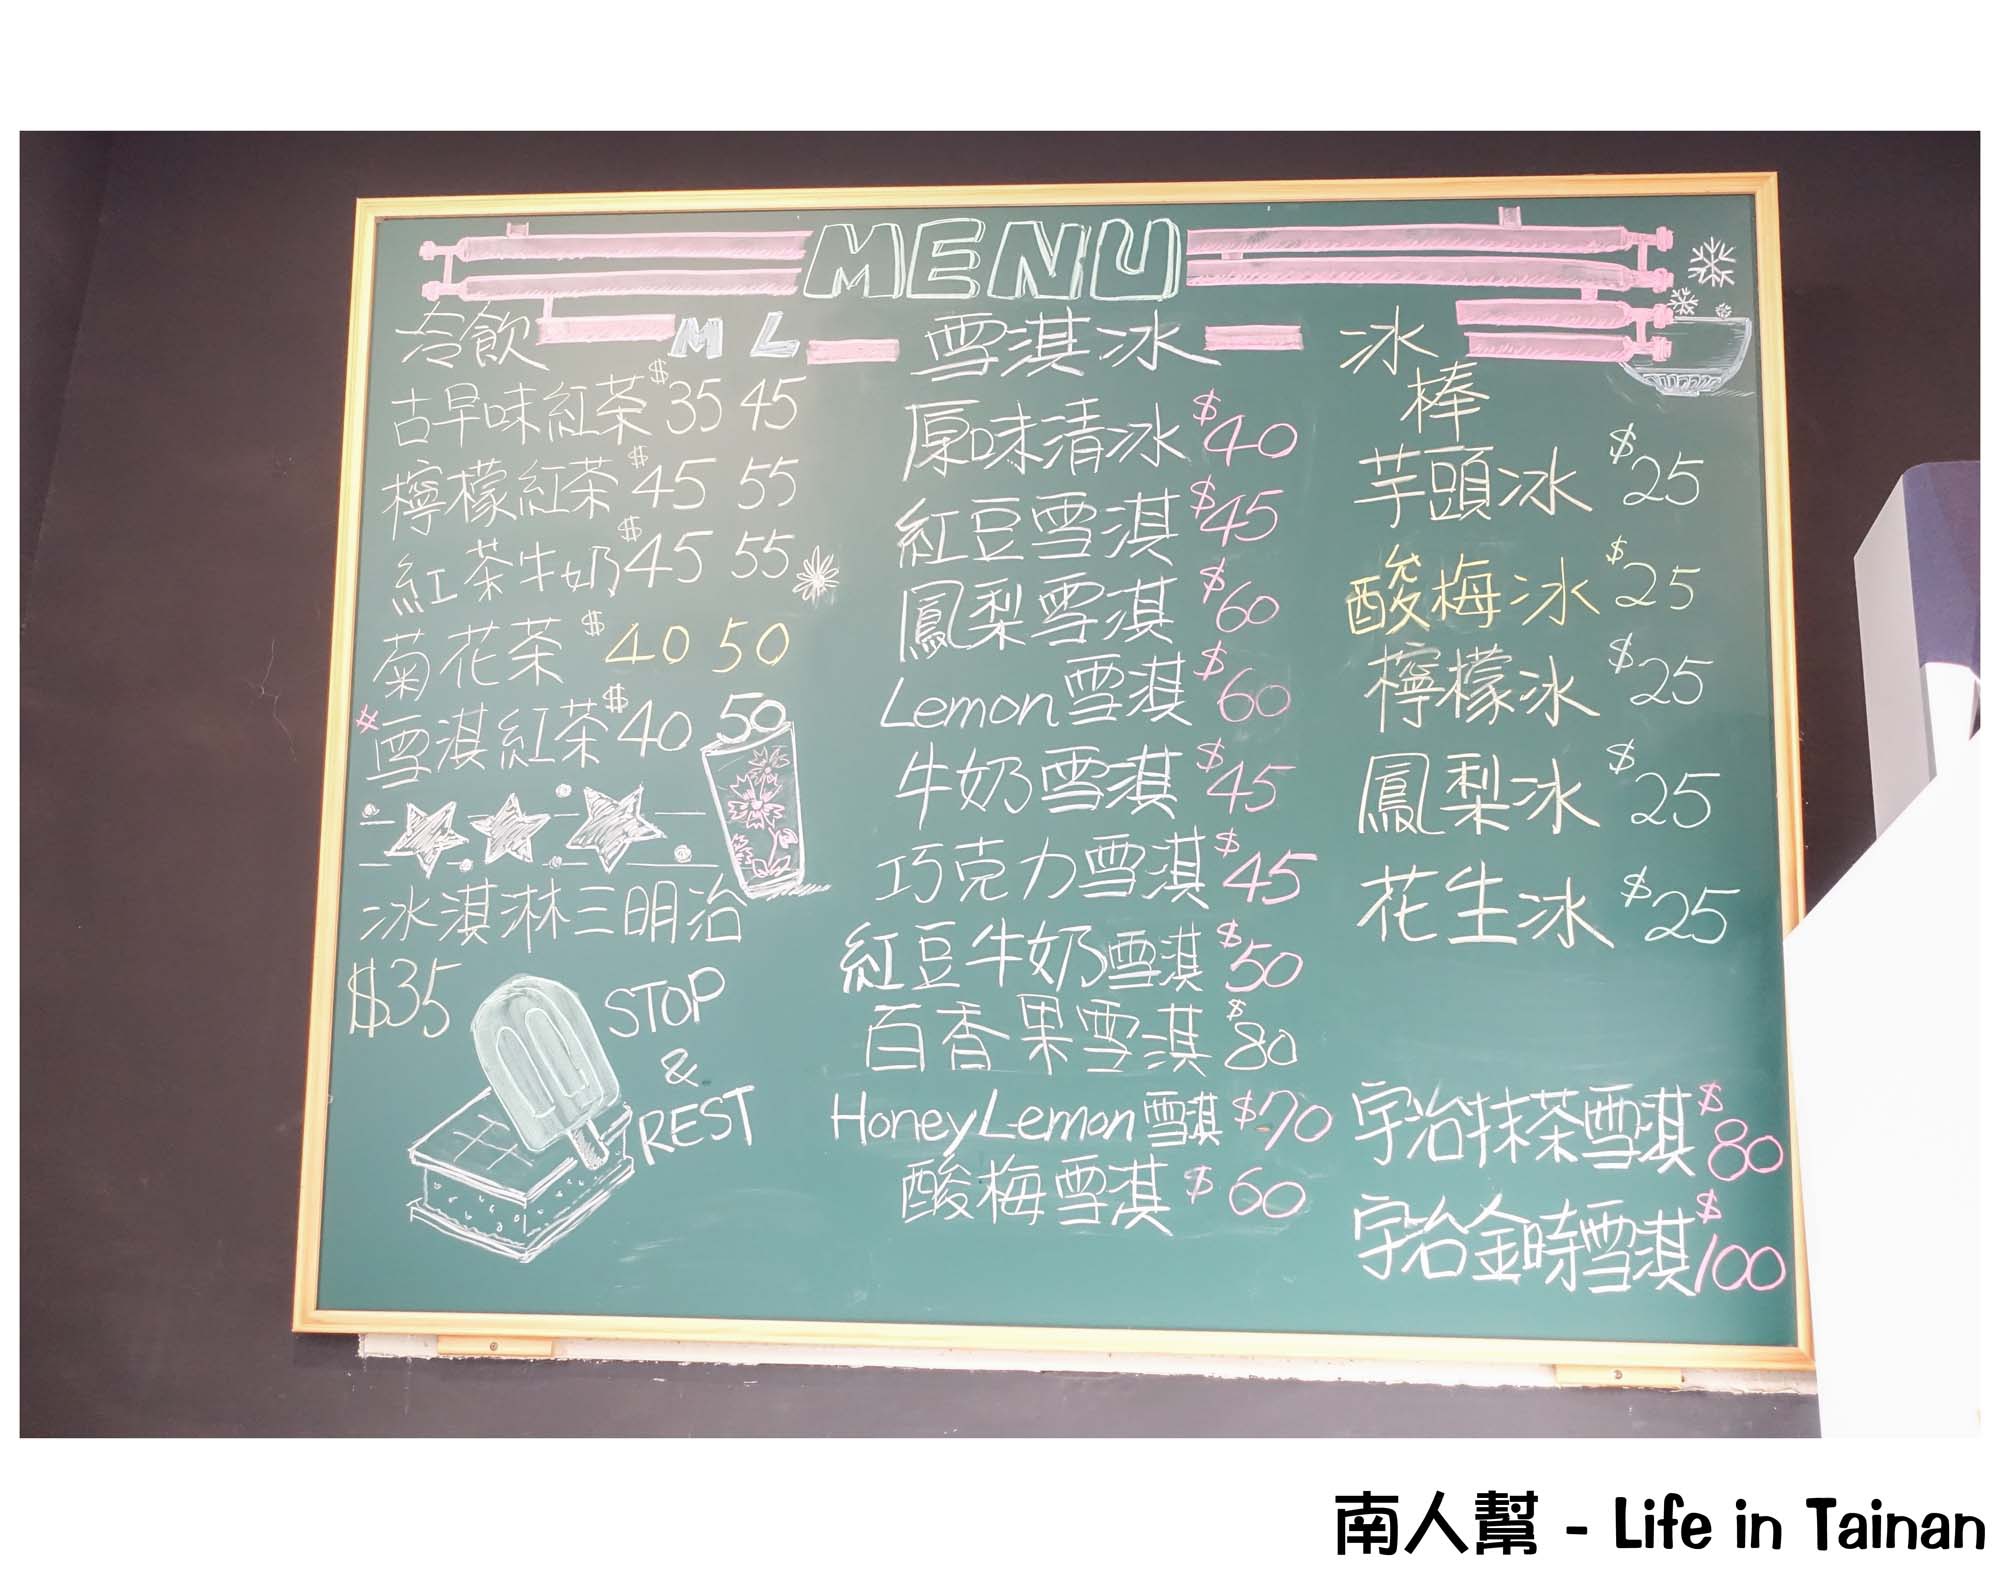 MENU
冷飲 M L
古早味紅茶 $35 45
檸檬紅茶 $45 55
紅茶牛奶 $45 55
菊花茶 $40 50
#雪淇紅茶 $40 50
冰淇淋三明治
$35
STOP
&
REST
雪淇冰
原味清冰 $40
紅豆雪淇 $45
鳳梨雪淇 $60
Lemon雪淇 $60
牛奶雪淇 $45
巧克力雪淇 $45
紅豆牛奶雪淇 $50
百香果雪淇 $80
HoneyLemon雪淇 $70
酸梅雪淇 $60
冰棒
芋頭冰 $25
酸梅冰 $25
檸檬冰 $25
鳳梨冰 $25
花生冰 $25
宇治抹茶雪淇 $80
宇治金時雪淇 $100
南人幫 - Life in Tainan